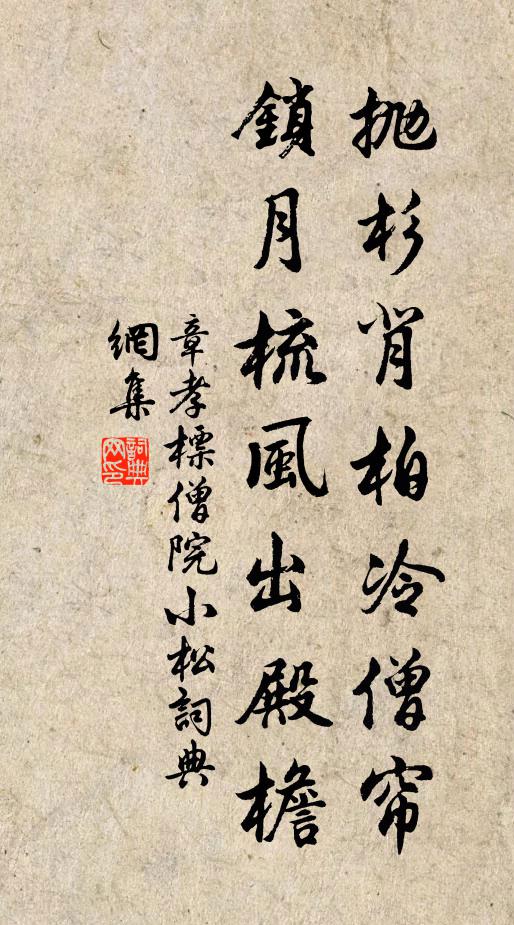 拋杉背柏冷僧帘
鎖月梳風出殿檐
章孝標僧院小松詞典
網集
詞典網印